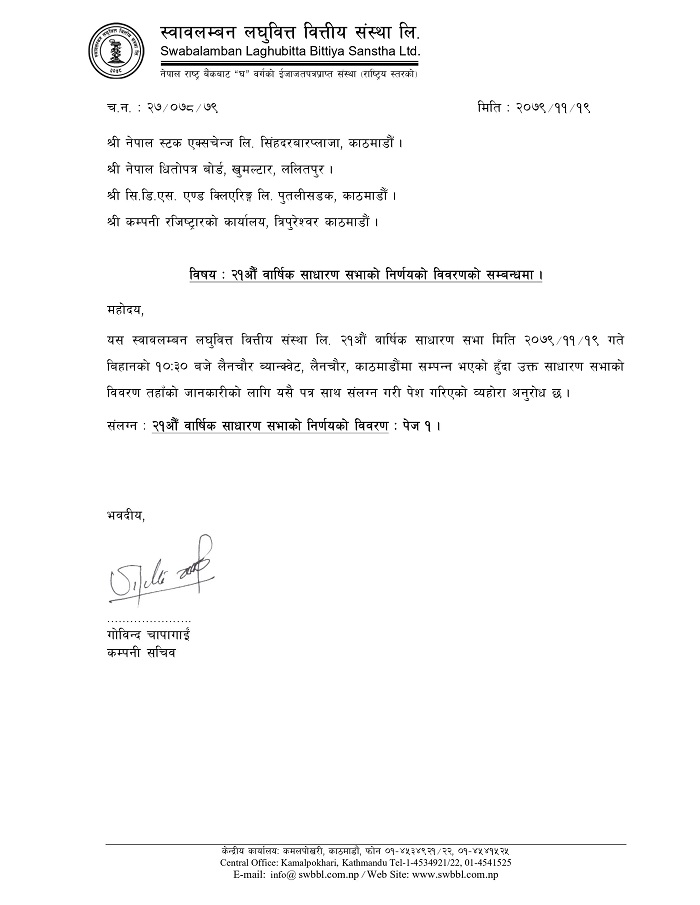 स्वावलम्बन लघुवित्त वित्तीय संस्था लि.
Swabalamban Laghubitta Bittiya Sanstha Ltd.
नेपाल राष्ट्र बैंकबाट "घ" वर्गको ईजाजतपत्रप्राप्त संस्था (राष्ट्रिय स्तरको)
च.न. : २७/०७८/७९
मिति : २०७९/११/१९
श्री नेपाल स्टक एक्सचेन्ज लि. सिंहदरबारप्लाजा, काठमाडौं ।
श्री नेपाल धितोपत्र बोर्ड, खुमल्टार, ललितपुर ।
श्री सि.डि.एस. एण्ड क्लिएरिङ्ग लि. पुतलीसडक, काठमाडौं ।
श्री कम्पनी रजिष्ट्रारको कार्यालय, त्रिपुरेश्वर काठमाडौं ।
विषय : २१औं वार्षिक साधारण सभाको निर्णयको विवरणको सम्बन्धमा ।
महोदय,
यस स्वावलम्बन लघुवित्त वित्तीय संस्था लि. २१औं वार्षिक साधारण सभा मिति २०७९/११/१९ गते
बिहानको १०:३० बजे लैनचौर ब्यान्क्वेट, लैनचौर, काठमाडौंमा सम्पन्न भएको हुँदा उक्त साधारण सभाको
विवरण तहाँको जानकारीको लागि यसै पत्र साथ संलग्न गरी पेश गरिएको व्यहोरा अनुरोध छ ।
संलग्न : २१औं वार्षिक साधारण सभाको निर्णयको विवरण : पेज १ ।
भवदीय,
.....................
गोविन्द चापागाईं
कम्पनी सचिव
केन्द्रीय कार्यालय: कमलपोखरी, काठमाडौं, फोन ०१-४५३४९२१/२२, ०१-४५४१५२५
Central Office: Kamalpokhari, Kathmandu Tel-1-4534921/22, 01-4541525
E-mail: info@ swbbl.com.np / Web Site: www.swbbl.com.np